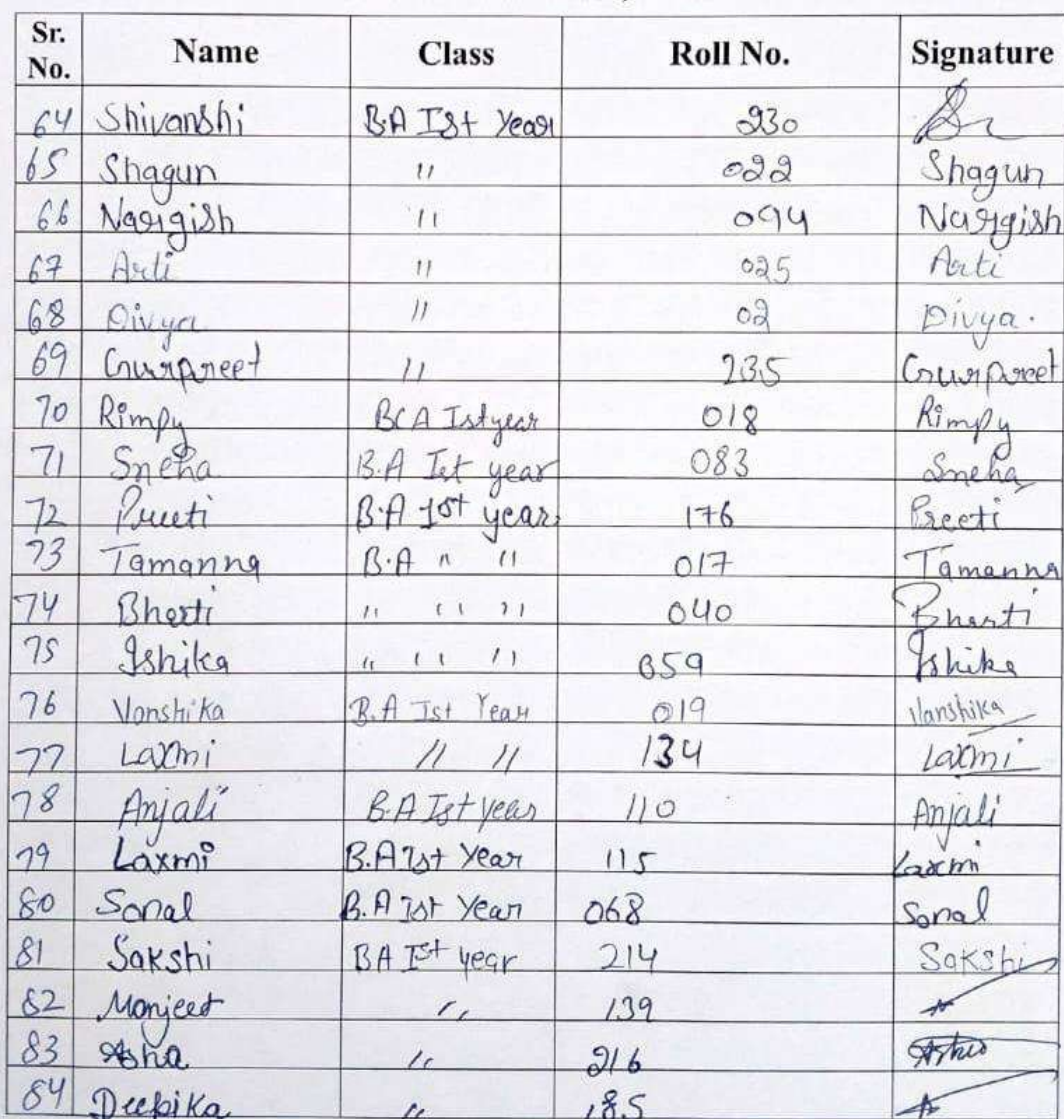 Sr. No. Name Class Roll No. Signature
64 Shivanshi B.A Ist Year 230
65 Shagun " 022 Shagun
66 Nargish " 094 Nargish
67 Arti " 025 Arti
68 Divya " 02 Divya.
69 Gurpreet " 235 Gurpreet
70 Rimpy BCA Ist year 018 Rimpy
71 Sneha B.A Ist year 083 Sneha
72 Preeti B.A 1st year 176 Preeti
73 Tamanna B.A " " 017 Tamanna
74 Bharti " " " 040 Bharti
75 Ishika " " " 059 Ishika
76 Vanshika B.A Ist Year 019 Vanshika
77 Laxmi " " 134 Laxmi
78 Anjali B.A Ist year 110 Anjali
79 Laxmi B.A Ist Year 115 Laxmi
80 Sonal B.A Ist Year 068 Sonal
81 Sakshi BA Ist year 214 Sakshi
82 Manjeet " 139
83 Asha " 216 Asha
84 Deepika " 185